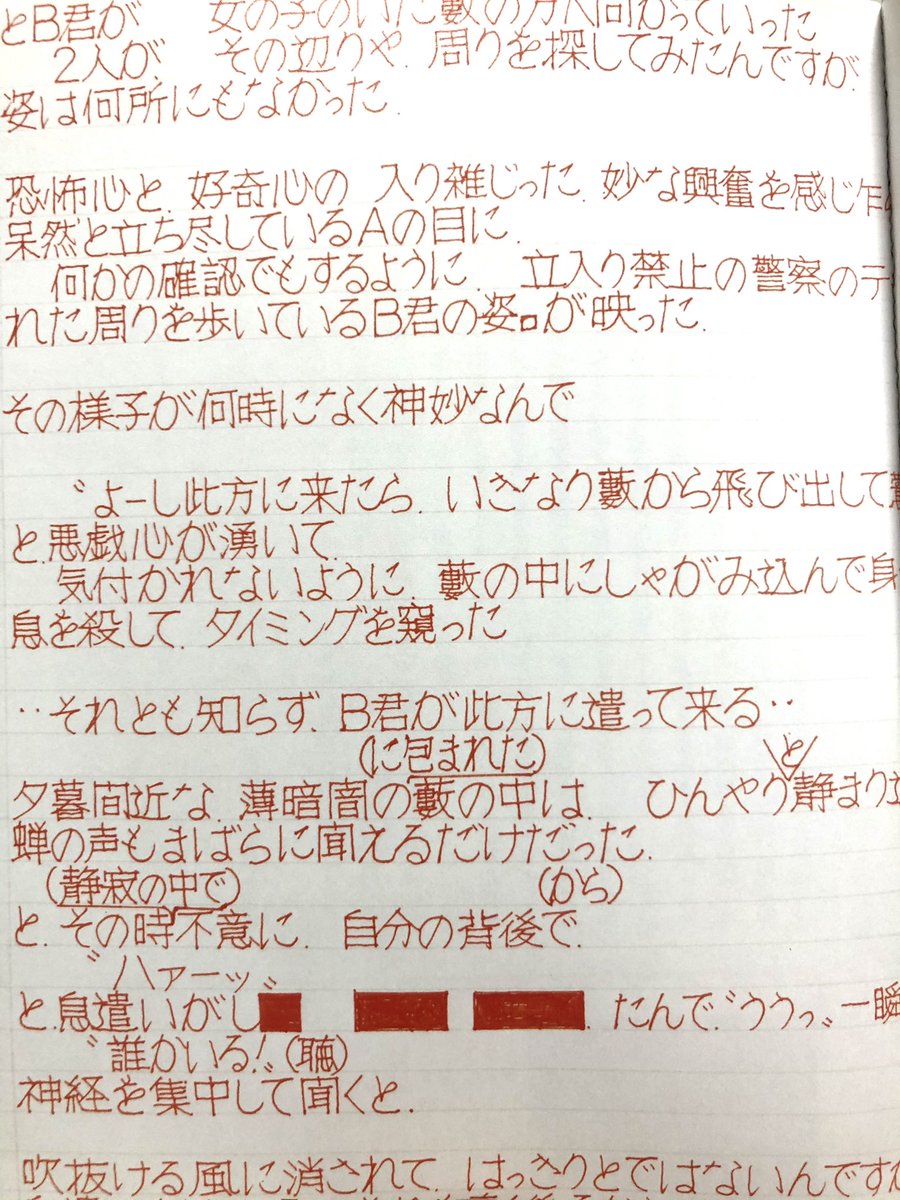 とB君が 女の子のいた藪の方へ向かっていった
2人が、 その辺りや、周りを探してみたんですが、
姿は何所にもなかった.
恐怖心と、好奇心の 入り雑じった、妙な興奮を感じ乍
呆然と立ち尽しているAの目に、
何かの確認でもするように、 立入り禁止の警察のテ
れた周りを歩いているB君の姿が映った.
その様子が何時になく神妙なんで
〝よーし此方に来たら、いきなり藪から飛び出して
と、悪戯心が湧いて、
気付かれないように、藪の中にしゃがみ込んで身
息を殺して、タイミングを窺った
‥それとも知らず、B君が此方に遣って来る‥
(に包まれた) と
夕暮間近な、薄暗闇の藪の中は、 ひんやり静まり
蝉の声もまばらに聞えるだけだった.
(静寂の中で) (から)
と、その時不意に、自分の背後で、
〝ハァーッ〟
と、息遣いがし たんで、〝ううっ〟一瞬
〝誰かいる!〟(聴)
神経を集中して聞くと、
吹抜ける風に消されて、はっきりとではないんですが